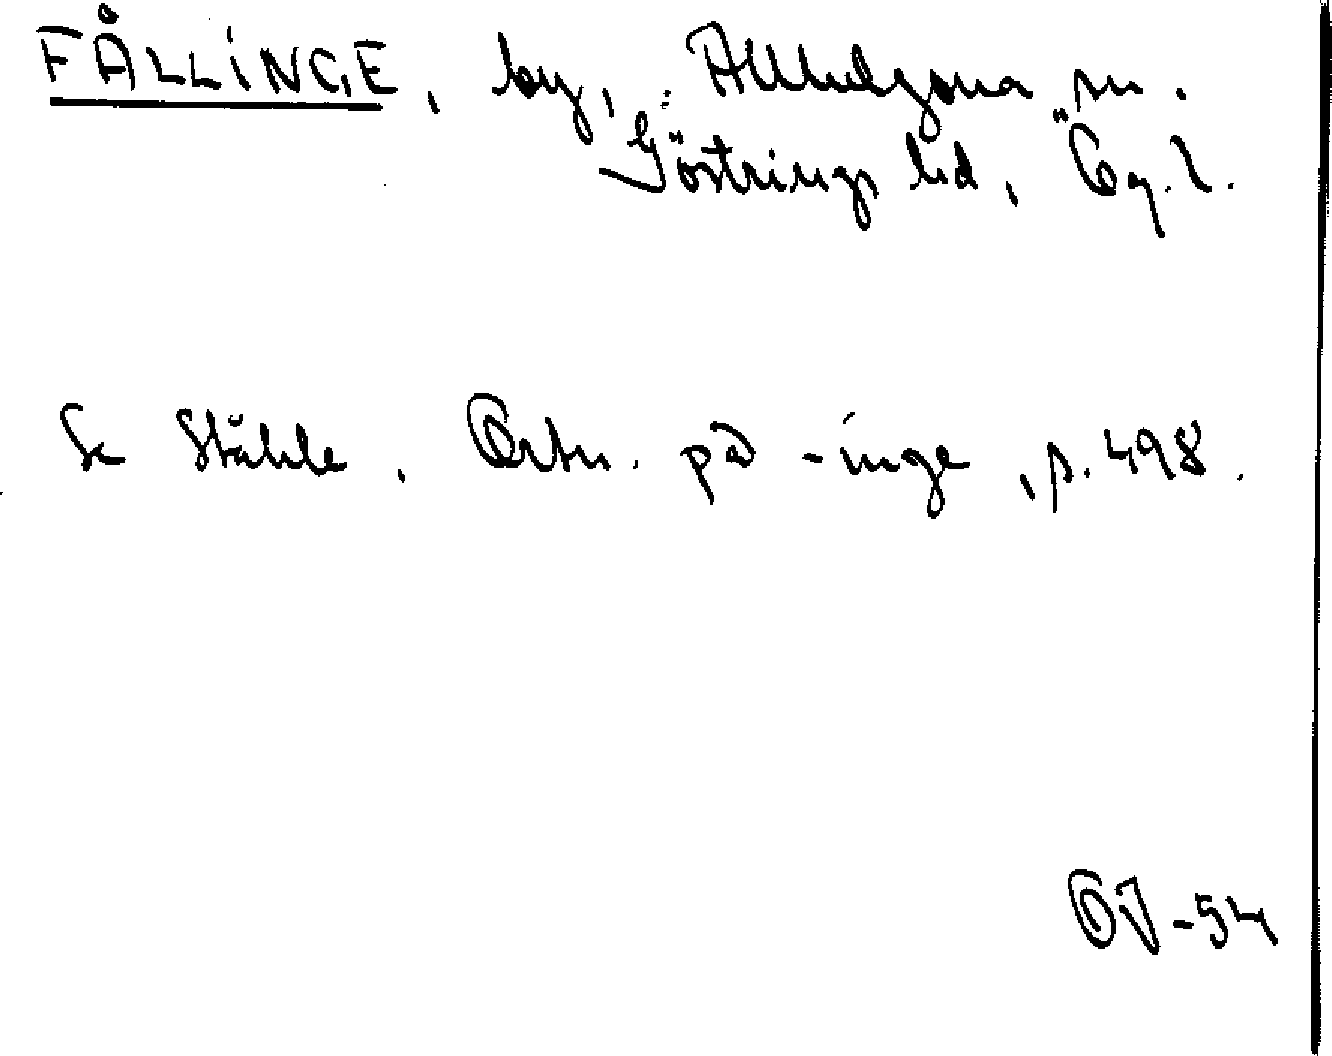 FÅLLINGE, by, Allhelgona sn.
Göstrings hd, Ög. l.
Se Ståhle, Ortn. på -inge, s. 498.
OJ-54